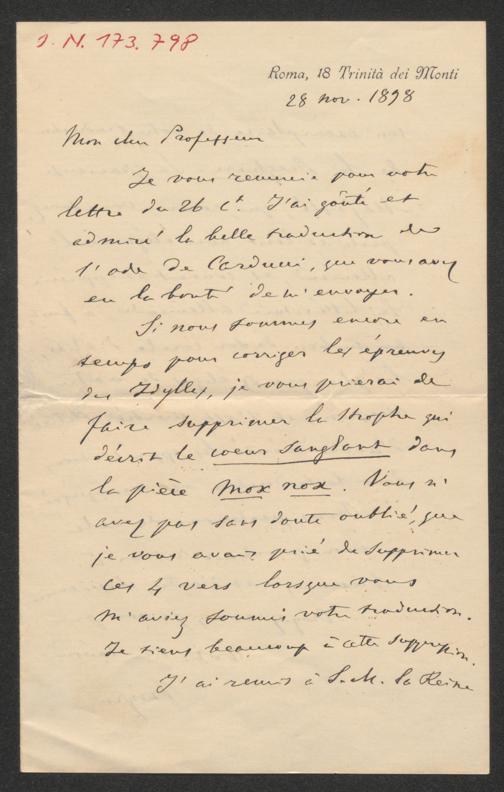 J. N. 173.798
Roma, 18 Trinità dei Monti
28 nov. 1898
Mon cher Professeur
Je vous remercie pour votre
lettre du 26 ct. J'ai goûté et
admiré la belle traduction de
l'ode de Carducci, que vous avez
eu la bonté de m'envoyer.
Si nous sommes encore en
temps pour corriger les épreuves
des Idylles, je vous prierai de
faire supprimer la strophe qui
décrit le coeur sanglant dans
la pièce Mox nox. Vous n'
avez pas sans doute oublié, que
je vous avais prié de supprimer
ces 4 vers lorsque vous
m'aviez soumis votre traduction.
Je tiens beaucoup à cette suppression.
J'ai remis à S. M. la Reine